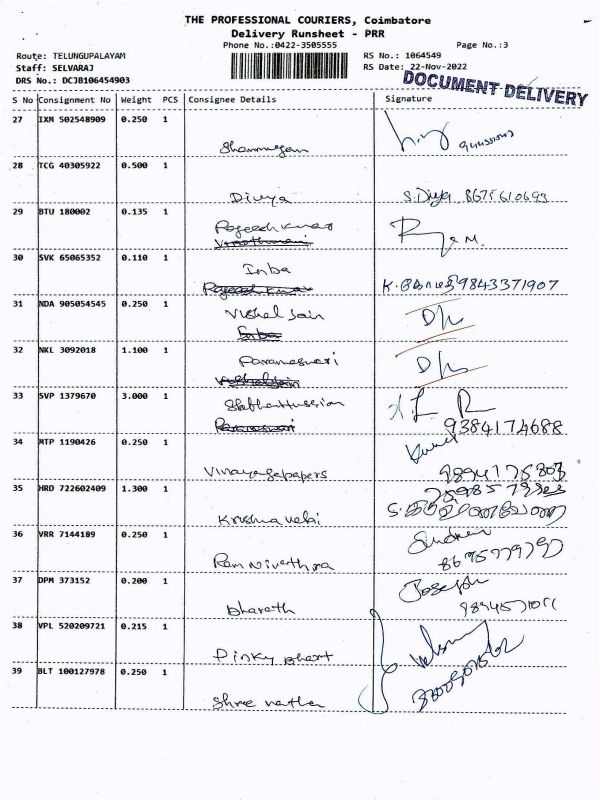 THE PROFESSIONAL COURIERS, Coimbatore
Delivery Runsheet - PRR
Phone No.:0422-3505555 Page No.:3
Route: TELUNGUPALAYAM RS No.: 1064549
Staff: SELVARAJ RS Date: 22-Nov-2022
DRS No.: DCJB106454903 DOCUMENT DELIVERY
S No Consignment No Weight PCS Consignee Details Signature
27 IXM 502548909 0.250 1
Shanmugam
28 TCG 40305922 0.500 1
Divya S.Divya 8675610693
29 BTU 180002 0.135 1
Rajeesh Kumar
30 SVK 65065352 0.110 1
Inba
9843371907
31 NDA 905054545 0.250 1
Vishal Jain
Inba
32 NKL 3092018 1.100 1
Parameswari
33 SVP 1379670 3.000 1
9384174688
34 MTP 1190426 0.250 1
Vinayagapapers
35 HRD 722602409 1.300 1
Krishnaveni
36 VRR 7144189 0.250 1
Ram Nivethra
37 DPM 373152 0.200 1
Joseph
Bharath
38 VPL 520209721 0.215 1
Pinky Bhart
39 BLT 100127978 0.250 1
Shree natha